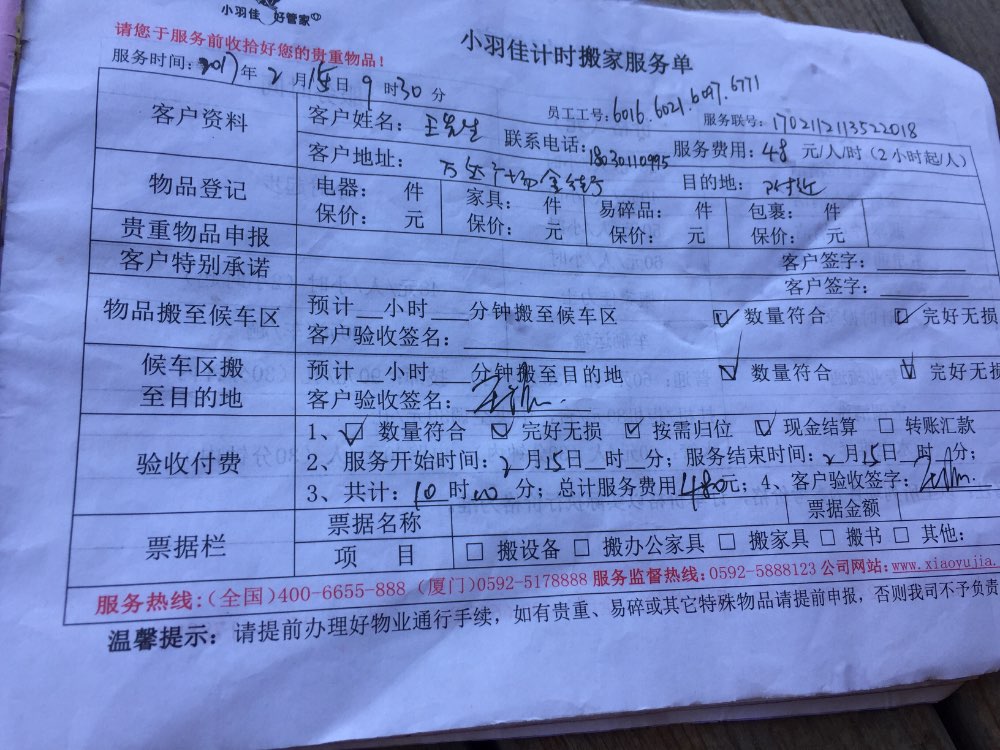 小羽佳 好管家
请您于服务前收拾好您的贵重物品！
小羽佳计时搬家服务单
服务时间：2017年2月15日9时30分
员工工号：6016.6021.6097.6771
服务联号：1702112113522018
客户资料
客户姓名：王先生 联系电话：18030110995 服务费用：48元/人/时（2小时起/人）
客户地址：万达广场金街 目的地：附近
物品登记
电器： 件 家具： 件 易碎品： 件 包裹： 件
保价： 元 保价： 元 保价： 元 保价： 元
贵重物品申报
客户签字：
客户特别承诺
客户签字：
物品搬至候车区
预计__小时___分钟搬至候车区 ☑数量符合 ☑完好无损
客户验收签名：
候车区搬至目的地
预计__小时___分钟搬至目的地 ☑数量符合 ☑完好无损
客户验收签名：
验收付费
1、☑数量符合 ☑完好无损 ☑按需归位 ☑现金结算 □转账汇款
2、服务开始时间：2月15日__时__分；服务结束时间：2月15日__时__分；
3、共计：10时00分；总计服务费用480元；4、客户验收签字：
票据栏
票据名称 票据金额
项 目 □搬设备 □搬办公家具 □搬家具 □搬书 □其他：
服务热线：(全国)400-6655-888 (厦门)0592-5178888 服务监督热线：0592-5888123 公司网站：www.xiaoyujia.
温馨提示：请提前办理好物业通行手续，如有贵重、易碎或其它特殊物品请提前申报，否则我司不予负责